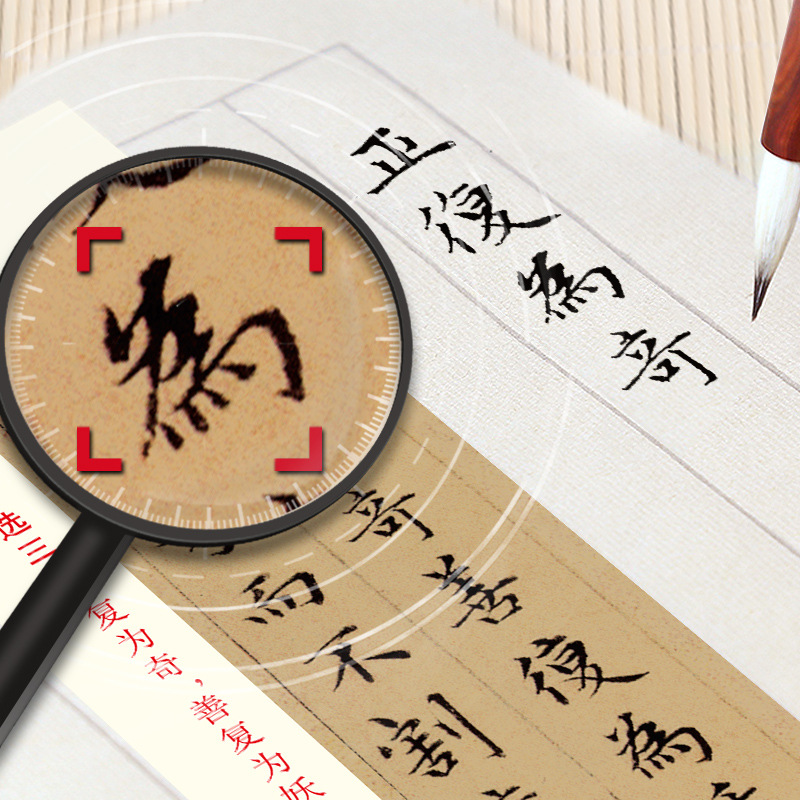 正復為奇
為
奇善復為
而不割
选三
复为奇，善复为妖